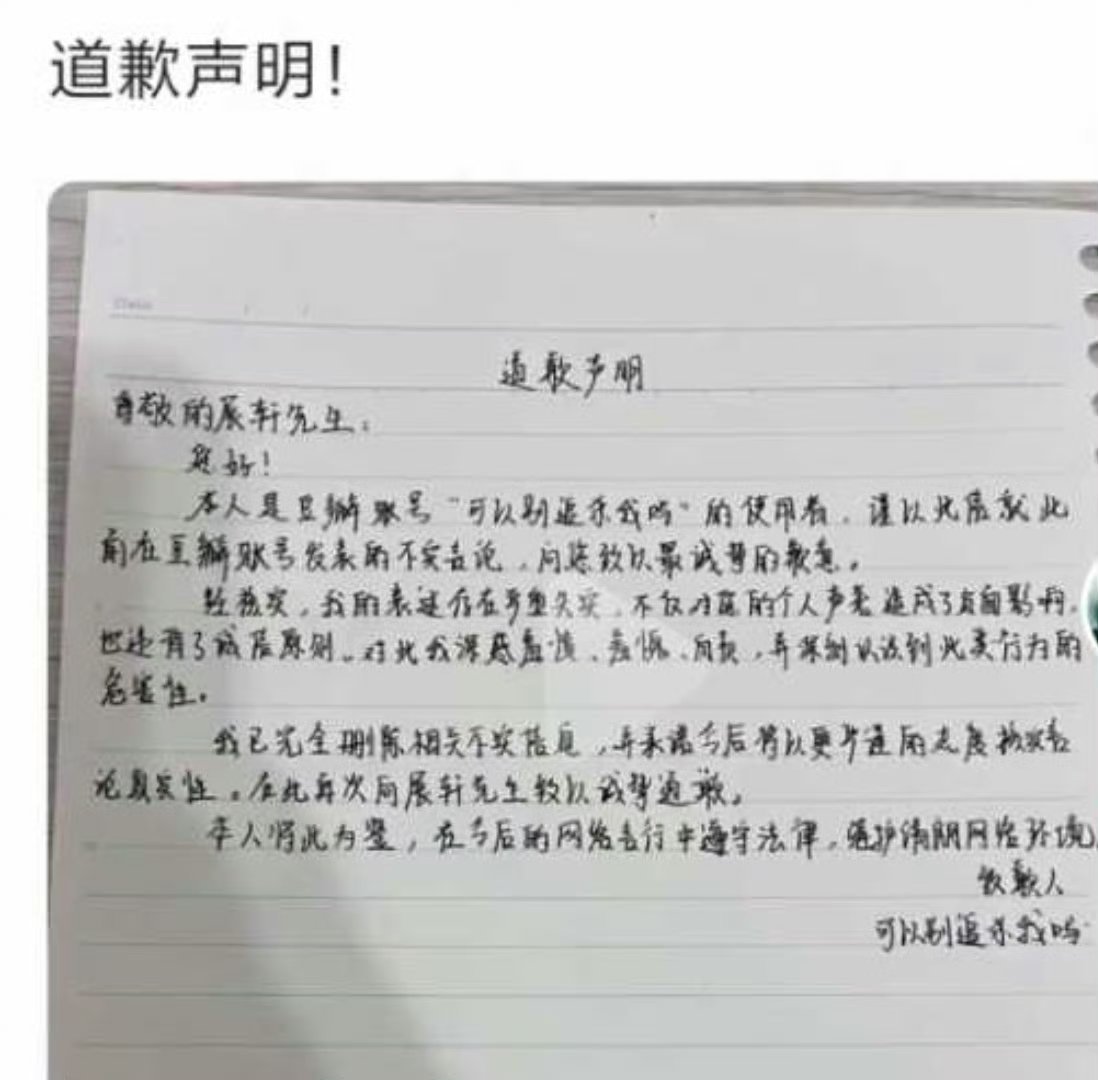 道歉声明！
Date
道歉声明
尊敬的展轩先生：
您好！
本人是豆瓣账号“可以别追杀我吗”的使用者，谨以此信就此
前在豆瓣账号发表的不实言论，向您致以最诚挚的歉意。
经核实，我的表述存在严重失实，不仅对您的个人声誉造成了负面影响，
也违背了诚信原则。对此我深感羞愧、羞愧、自责，并深刻认识到此类行为的
危害性。
我已完全删除相关不实信息，并承诺今后将以更严谨的态度核实言
论真实性。在此再次向展轩先生致以诚挚道歉。
本人将此为鉴，在今后的网络言行中遵守法律，维护清朗网络环境
致歉人
可以别追杀我吗